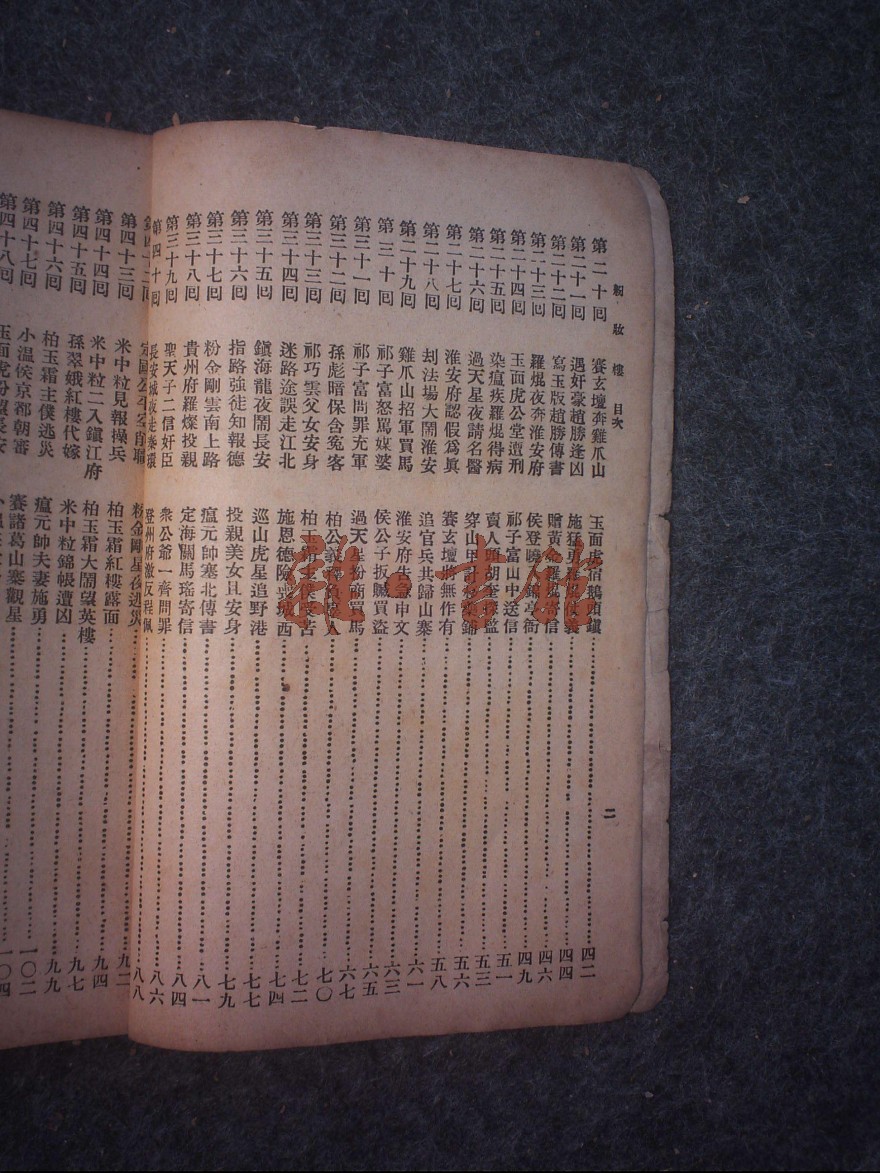 粉妝樓 目次 二
第二十回 賽玄壇奔雞爪山 玉面虎宿鵝頭鎮 四二
第二十一回 遇奸豪趙勝逢凶 施猛勇羅焜仗義 四四
第二十二回 寫玉版趙勝傳書 贈黃金羅焜寄信 四六
第二十三回 羅焜夜奔淮安府 侯登曉入鋪亭衙 四九
第二十四回 玉面虎公堂遭刑 祁子富山中送信 五一
第二十五回 染瘟疾羅焜得病 賣人頭胡奎探監 五三
第二十六回 過天星夜請名醫 穿山甲計投藥鋪 五六
第二十七回 淮安府認假為真 賽玄壇將無作有 五八
第二十八回 刦法場大鬧淮安 追官兵共歸山寨 六一
第二十九回 雞爪山招軍買馬 淮安府告急申文 六三
第三十回 祁子富怒罵媒婆 侯公子扳贓買盜 六五
第三十一回 祁子富問罪充軍 過天星扮商買馬 六七
第三十二回 孫彪暗保含冤客 柏公義 人 七〇
第三十三回 祁巧雲父女安身 柏玉霜主僕受苦 七二
第三十四回 迷路途誤走江北 施恩德險喪城西 七四
第三十五回 鎮海龍夜鬧長安 巡山虎星追野港 七七
第三十六回 指路強徒知報德 投親美女且安身 七九
第三十七回 粉金剛雲南上路 瘟元帥塞北傳書 八一
第三十八回 貴州府羅燦投親 定海關馬瑤寄信 八四
第三十九回 聖天子二信奸臣 衆公爺一齊問罪 八六
第四十回 長安城夜走秦環 登州府激反程佩 八八
第四十二回 定國公 粉金剛星夜逃災
第四十三回 米中粒見報操兵 柏玉霜紅樓露面 九二
第四十四回 米中粒二入鎮江府 柏玉霜大鬧望英樓 九四
第四十五回 孫翠娥紅樓代嫁 米中粒錦帳遭凶 九七
第四十六回 柏玉霜主僕逃災 瘟元帥夫妻施勇 九九
第四十七回 小溫侯京都朝審 賽諸葛山寨觀星 一〇二
第四十八回 玉面虎盼望長安 一〇四